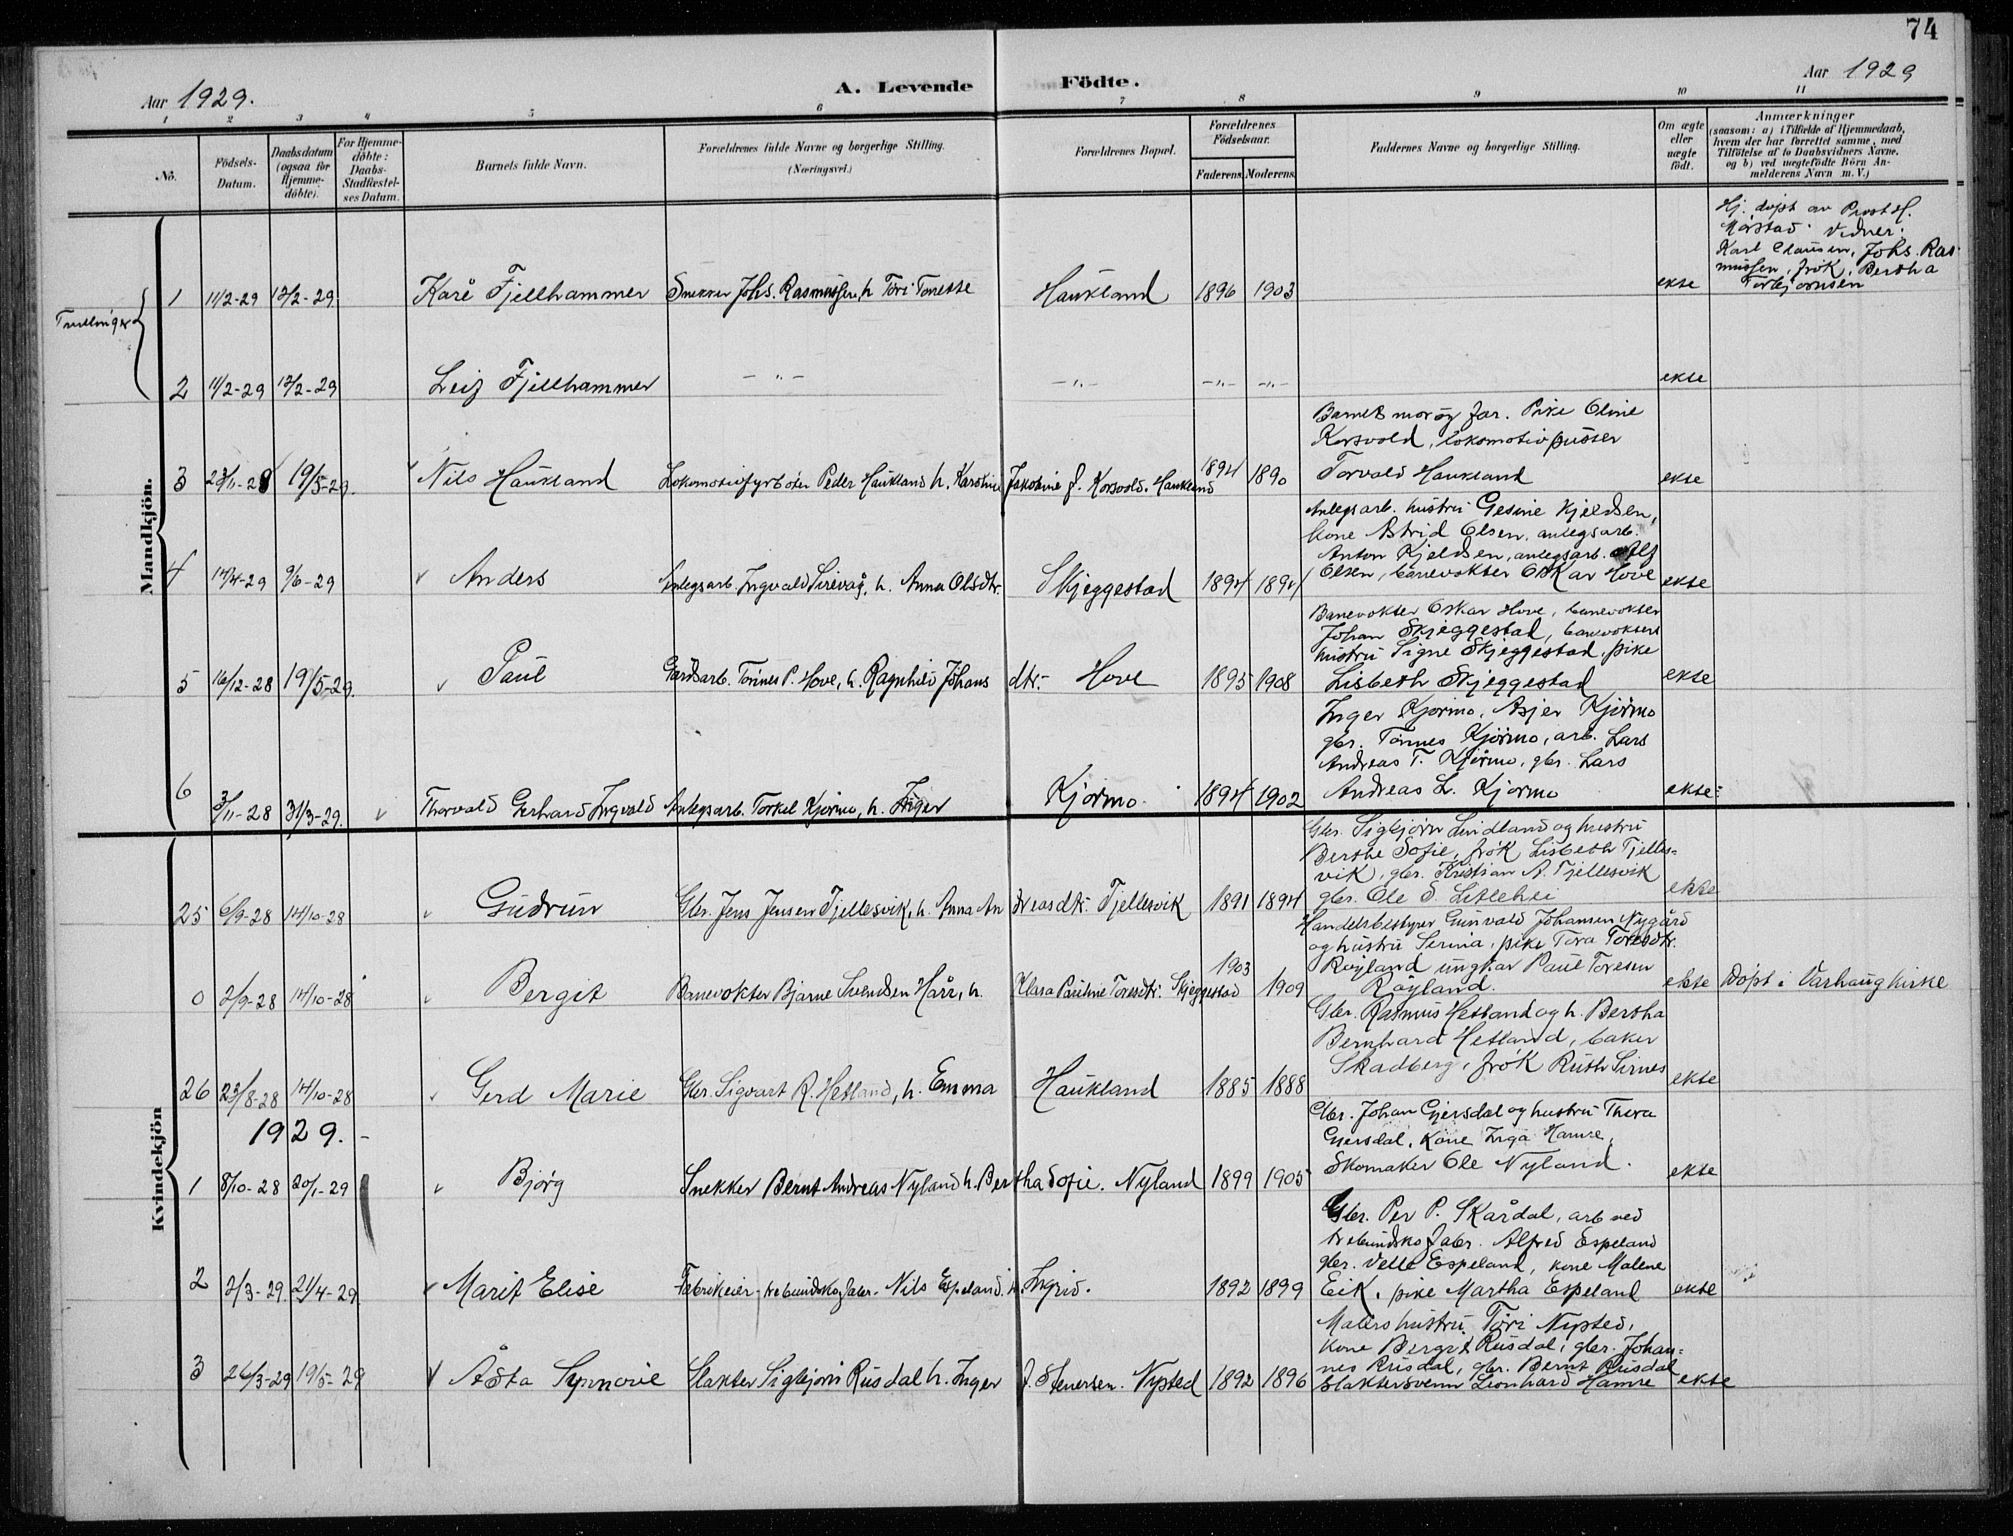 74
Aar 1929.
A. Levende Födte.
Aar 1929
1 2 3 4 5 6 7 8 9 10 11
No.
Födsels-Datum.
Daabsdatum (ogsaa för Hjemme-döbte).
For Hjemme-döbte: Daabs-Stadfæstel-ses Datum.
Barnets fulde Navn.
Forældrenes fulde Navne og borgerlige Stilling. (Næringsvei.)
Forældrenes Bopæl.
Forældrenes Födselsaar.
Faderens. Moderens.
Faddernes Navne og borgerlige Stilling.
Om ægte eller uægte födt.
Anmærkninger
(saasom: a) i Tilfælde af Hjemmedaab, hvem der har forrettet samme, med Tilföielse af to Daabsvidners Navne, og b) ved uægtefödte Börn An-melderens Navn m. V.)
Mandkjön.
Hj. døpt av Prost H.
Mørstad. Vidner:
Karl Clausen, Johs. Ras-
mussen, frøk. Bertha
Torbjørnsen
Tvillinger
1 11/2-29 12/2-29. Kåre Fjellhammer Snekker Johs. Rasmussen, h. Tori Tonette Haukland 1896 1903 ekte
2 11/2-29 12/2-29 Leif Fjellhammer -"- -"- -"- -"- ekte
Barnets mor og far. Pike Oline
Korsvold, lokomotivpusser
3 23/11-28 19/5-29. Nils Haukland Lokomotivfyrbøter Peder Haukland h. Karoline Jakobine f. Korsvold. Haukland 1894 1890 Torvald Haukland ekte
Anlegsarb. hustru Gesine Kjeldsen,
kone Astrid Olsen, anlegsarb.
Anton Kjeldsen, anlegsarb. Alf
4 14/4-29 9/6-29 Anders Anlegsarb. Ingvald Sirevåg, h. Anna Olsdtr. Skjeggestad 1894 1894 Olsen, banevokter Oskar Hove ekte
Banevokter Oskar Hove, banevokter
Johan Skjeggestad, banevokters
hustru Signe Skjeggestad, pike
5 16/12-28 19/5-29. Paul Gårdsarb. Tønnes P. Hove, h. Ragnhild Johans dtr. Hove 1895 1908 Lisbeth Skjeggestad ekte
Inger Kjørmo, Asjer Kjørmo
gbr. Tønnes Kjørmo, arb. Lars
Andreas T. Kjørmo, gbr. Lars
6 3/11-28 31/3-29. Thorvald Gerhard Ingvald Anlegsarb. Torkel Kjørmo, h. Inger Kjørmo. 1894 1902 Andreas L. Kjørmo ekte.
Kvindekjön
Gbr. Sigbjørn Lindland og hustru
Berthe Sofie, frøk Lisbeth Tjelles-
vik, gbr. Kristian A. Tjellesvik
25 6/9-28 14/10-28 Gudrun Gbr. Jens Jensen Tjellesvik, h. Anna An dreasdtr. Tjellesvik 1891 1894 gbr. Ole S. Litlehei ekte
Handelsbestyrer Gunvald Johansen Nygård
og hustru Serina, pike Tora Toresdtr.
Røyland ungkar Paul Toresen
0 2/9-28 14/10-28 Bergit Banevokter Bjarne Svendsen Hårr, h. Klara Pauline Toresdtr. Skjeggestad 1903 1909 Røyland. ekte Døpt i Varhaug kirke
Gbr. Rasmus Hetland og h. Bertha
Bernhard Hetland, baker
Skadberg, frøk Ruth Sirnes
26 23/8-28 14/10-28 Gerd Marie Gbr. Sigvart R. Hetland, h. Emma Haukland 1885 1888 ekte
1929. -
Gbr. Johan Gjersdal og hustru Thora
Gjersdal, Kone Inga Hamre,
1 8/10-28 20/1-29 Bjørg Snekker Bernt Andreas Nyland h. Bertha Sofie. Nyland 1899 1905 Skomaker Ole Nyland. ekte
Gbr. Per P. Skårdal, arb ved
trebundskofabr. Alfred Espeland
gbr. Velle Espeland, kone Malene
2 2/3-29. 21/4-29 Marit Elise Fabrikeier trebundskofabr. Nils Espeland. h. Ingrid. 1892 1899 Eik, pike Martha Espeland ekte
Malers hustru Tori Nysted,
kone Bergit Rusdal, gbr. Johan-
nes Rusdal, gbr. Bernt Rusdal
3 26/3-29 19/5-29 Åsta Synnøve Slakter Sigbjørn Rusdal h. Inger f. Stenersen. Nysted 1892 1896 Slaktersvenn Leonhard Hamre ekte